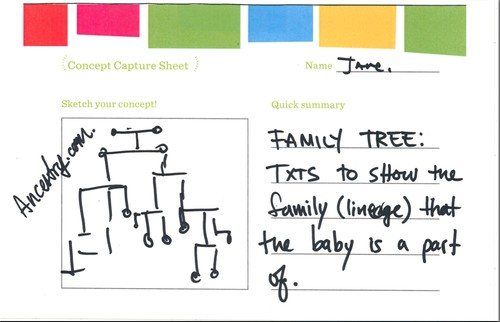 Concept Capture Sheet
Name Jane.
Sketch your concept!
Quick summary
Ancestry.com.
FAMILY TREE:
TXTS to SHOW the
family (lineage) that
the baby is a part
of.